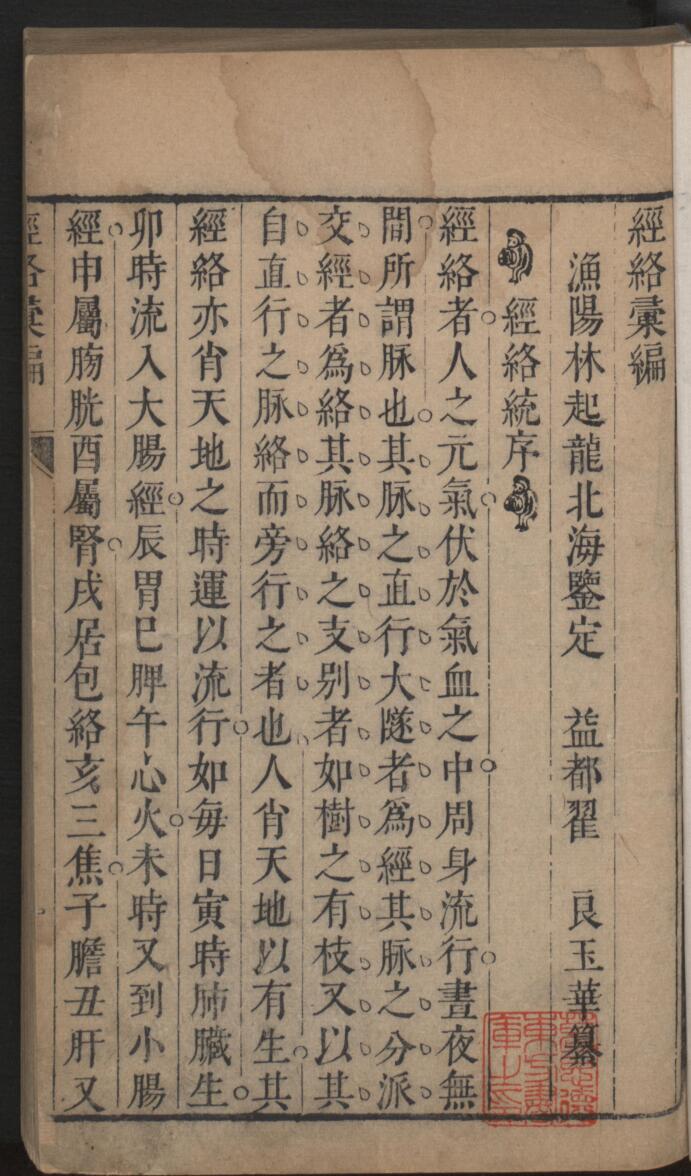 經絡彙編
漁陽林起龍北海鑒定　益都翟　良玉華纂
經絡統序
經絡者人之元氣伏於氣血之中周身流行晝夜無
間所謂脉也其脉之直行大隧者爲經其脉之分派
交經者爲絡其脉絡之支别者如樹之有枝又以其
自直行之脉絡而旁行之者也人肖天地以有生其
經絡亦肖天地之時運以流行如每日寅時肺臟生
卯時流入大腸經辰胃巳脾午心火未時又到小腸
經申屬膀胱酉屬腎戌居包絡亥三焦子膽丑肝又
經絡彙編